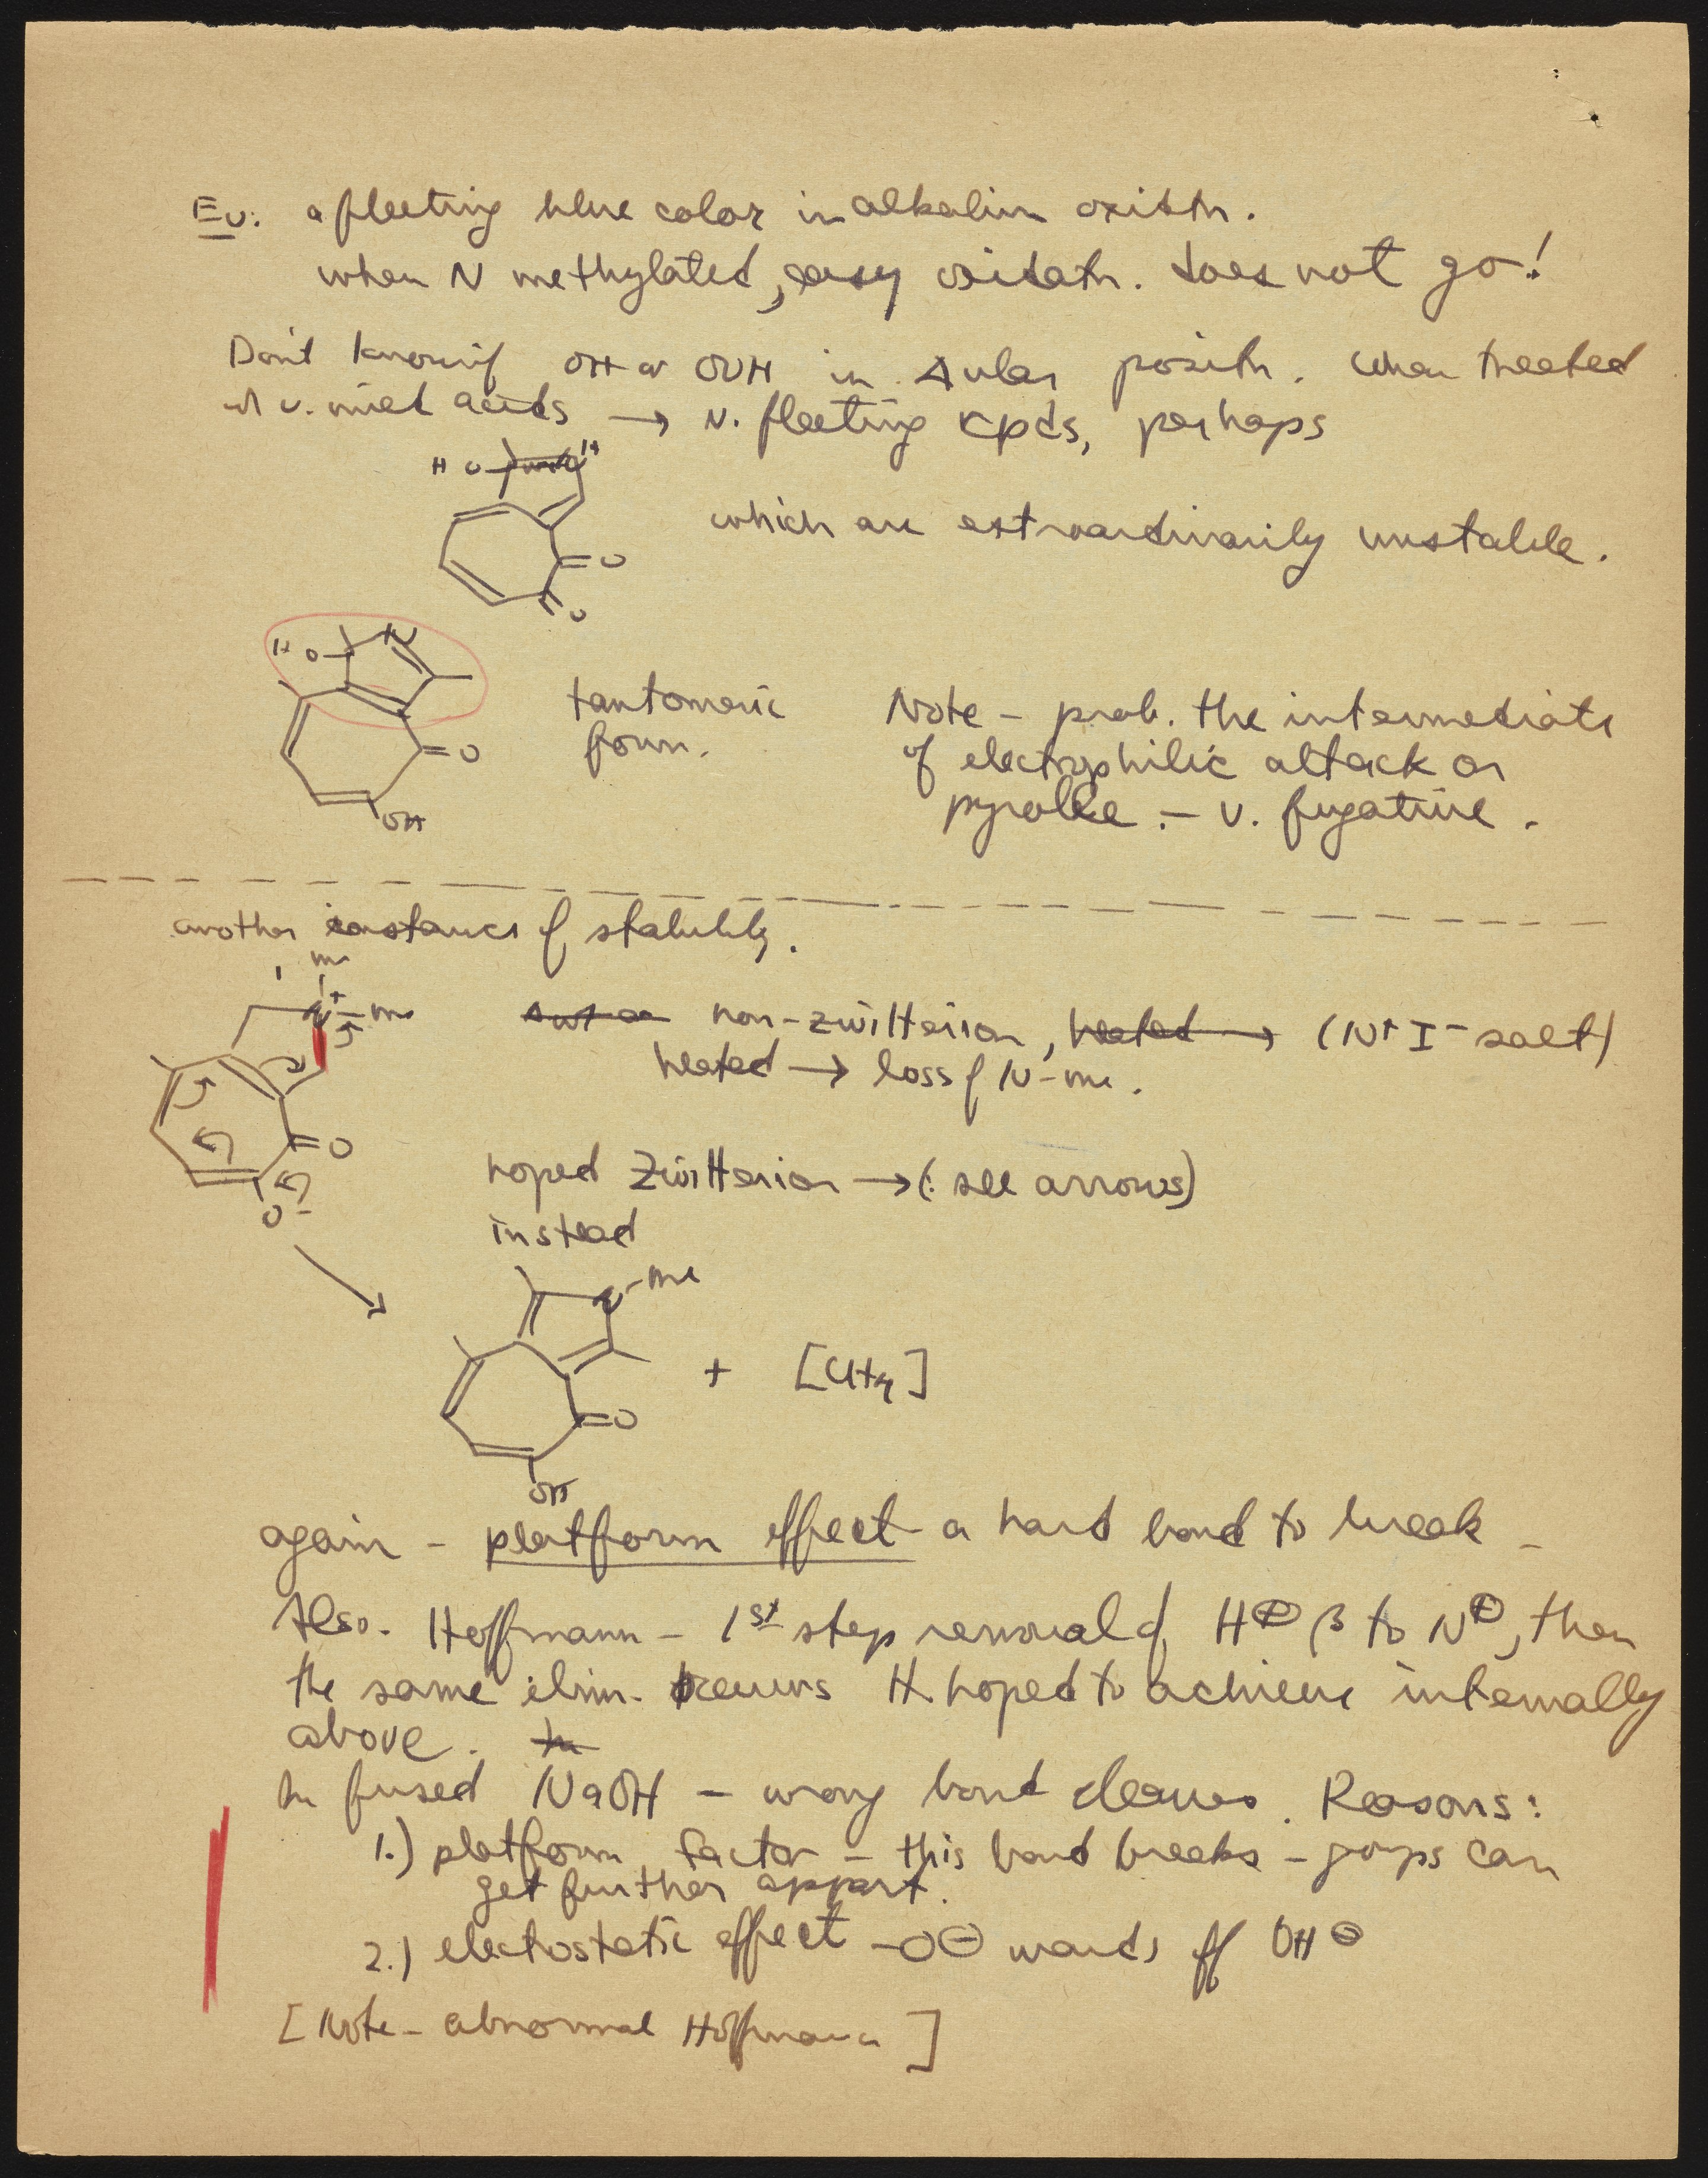 Ev: a fleeting blue color in alkalin oxidtn.
when N methylated, easy oxidatn. does not go!
Don't know if OH or OOH in position. When treated
w/ v. mild acids → v. fleeting cpds, perhaps
H O
which are extraordinarily unstable.
O
O
H O N
tautomeric
form.
O
OH
Note - prob. the intermediate
of electrophilic attack on
pyrolle - v. fugative.
another instance of stability.
me
N+ - me
non-zwitterion, heated → (N+ I- salt)
heated → loss of N-me.
O
O-
hoped Zwitterion → (see arrows)
instead
N-me
+ [CH4]
O
OH
again - platform effect - a hard bond to break -
Also. Hoffmann - 1st step removal of H⊕ β to N⊕, then
the same elim. occurs H. hoped to achieve internally
above.
In fused NaOH - wrong bond cleaves. Reasons:
1.) platform factor - this bond breaks - groups can
get further appart.
2.) electrostatic effect -O⊖ wards off OH⊖
[Note - abnormal Hoffmann]